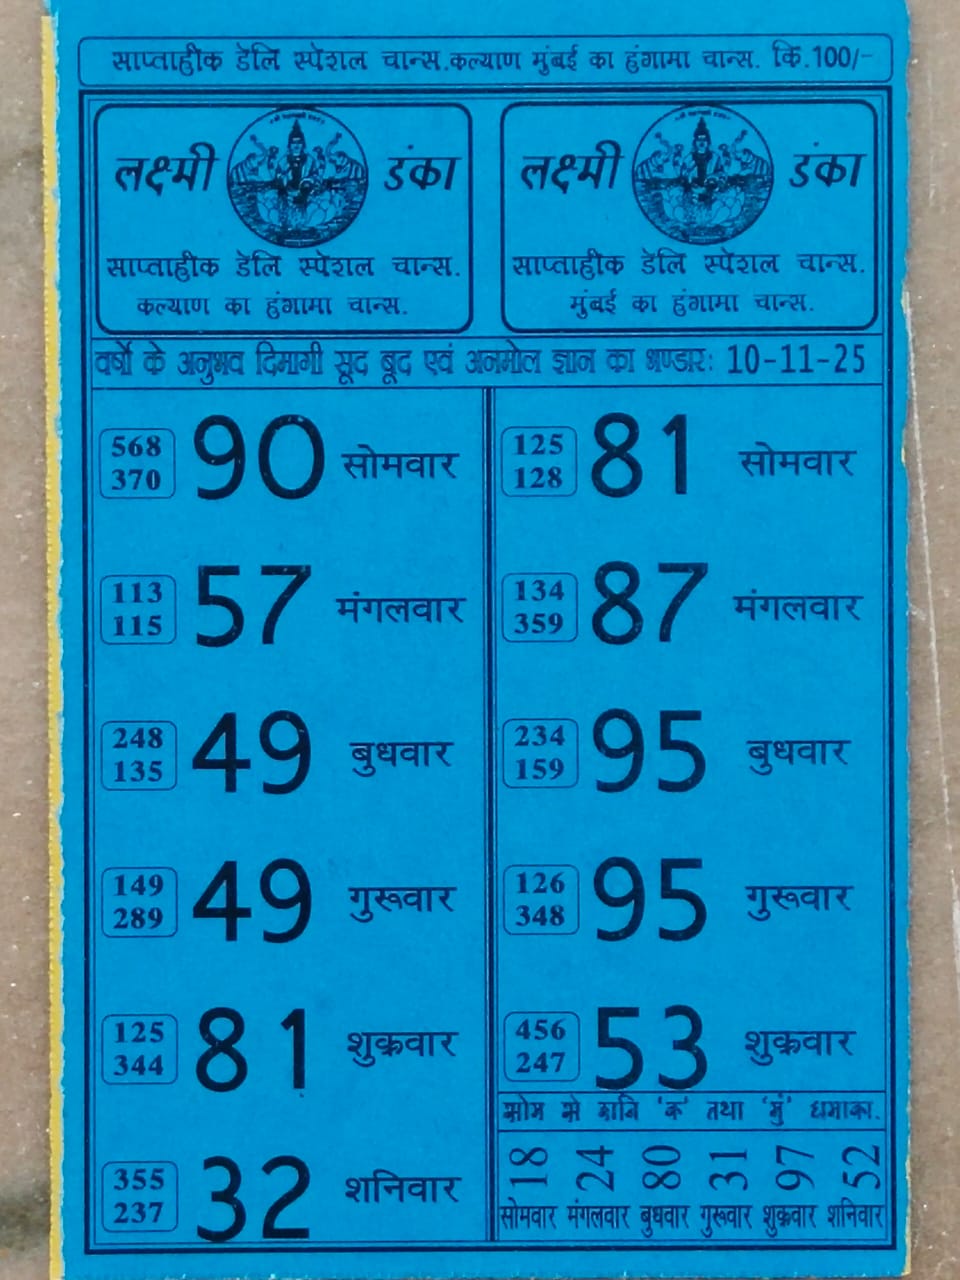 साप्ताहीक डेलि स्पेशल चान्स.कल्याण मुंबई का हंगामा चान्स. कि.100/-
लक्ष्मी डंका
साप्ताहीक डेलि स्पेशल चान्स.
कल्याण का हंगामा चान्स.
लक्ष्मी डंका
साप्ताहीक डेलि स्पेशल चान्स.
मुंबई का हंगामा चान्स.
वर्षो के अनुभव दिमागी सूद बूद एवं अनमोल ज्ञान का भण्डारः 10-11-25
568
370
90 सोमवार
113
115
57 मंगलवार
248
135
49 बुधवार
149
289
49 गुरूवार
125
344
81 शुक्रवार
355
237
32 शनिवार
125
128
81 सोमवार
134
359
87 मंगलवार
234
159
95 बुधवार
126
348
95 गुरूवार
456
247
53 शुक्रवार
सोम से शनि 'क' तथा 'मुं' धमाका.
18 24 80 31 97 52
सोमवार मंगलवार बुधवार गुरूवार शुक्रवार शनिवार